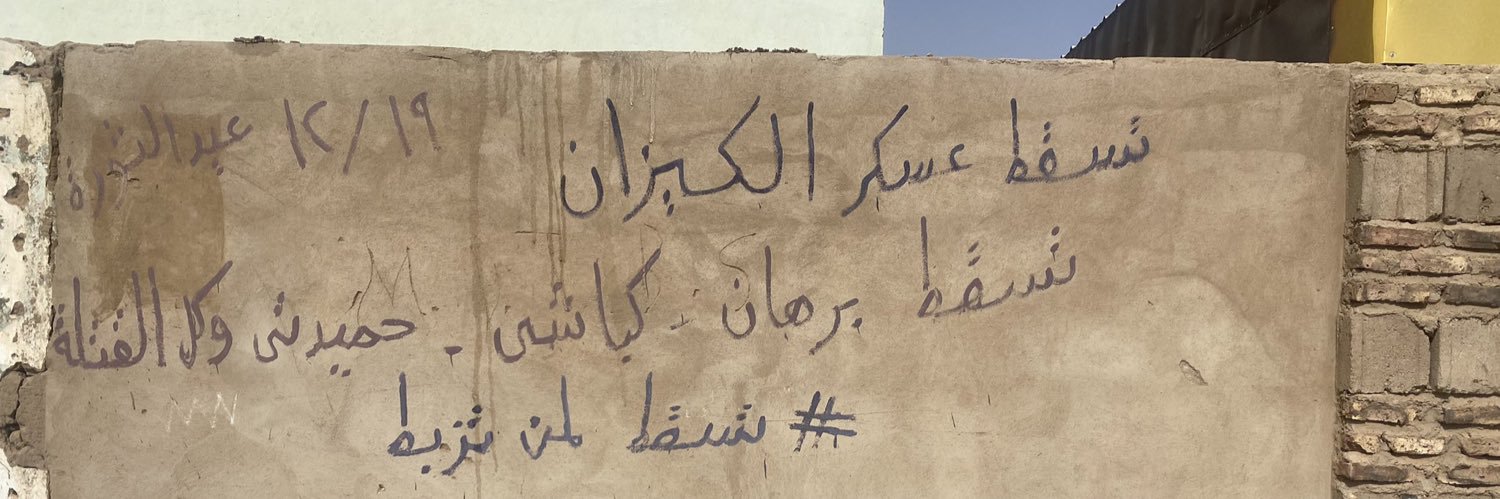 تسقط عسكر الكيزان
١٢/١٩ عيد الثورة
تسقط برهان - كباشي - حميدتي وكل القتلة
# تسقط لمن تزبط